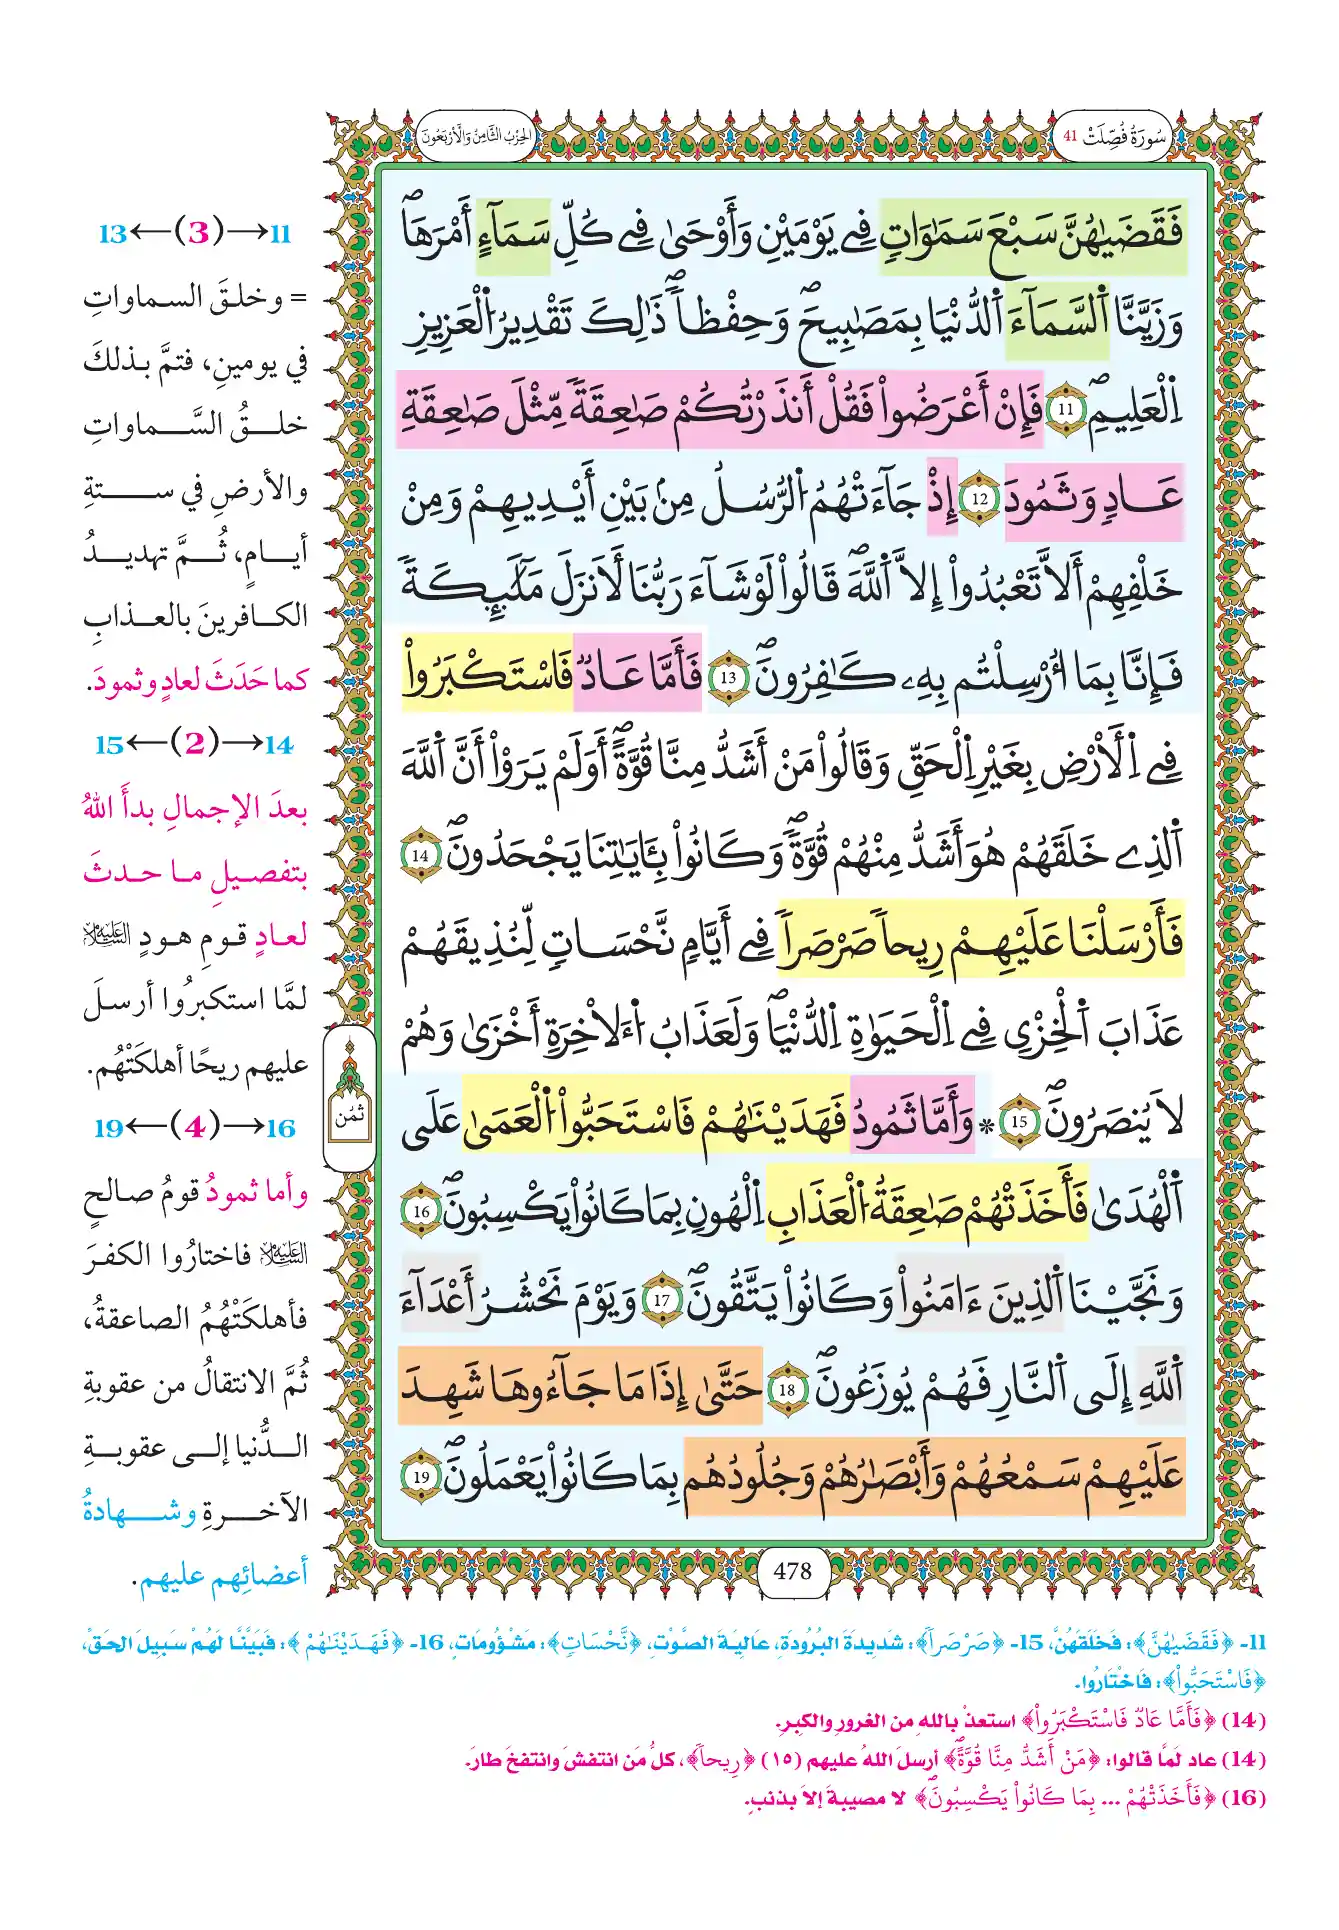 سُورَةُ فُصِّلَتْ 41
الحِزْبُ الثَّامِنُ وَالأَرْبَعُونَ
فَقَضَيٰهُنَّ سَبْعَ سَمَٰوَاتٖ فِے يَوْمَيْنِ وَأَوْحَىٰ فِے كُلِّ سَمَآءٍ أَمْرَهَاۖ
وَزَيَّنَّا اَ۬لسَّمَآءَ اَ۬لدُّنْيَا بِمَصَٰبِيحَۖ وَحِفْظاٗۖ ذَٰلِكَ تَقْدِيرُ اُ۬لْعَزِيزِ
اِ۬لْعَلِيمِۖ 11 فَإِنْ أَعْرَضُواْ فَقُلْ أَنذَرْتُكُمْ صَٰعِقَةٗ مِّثْلَ صَٰعِقَةِ
عَادٖ وَثَمُودَ 12 إِذْ جَآءَتْهُمُ اُ۬لرُّسُلُ مِنۢ بَيْنِ أَيْدِيهِمْ وَمِنْ
خَلْفِهِمْ أَلَّا تَعْبُدُواْ إِلَّا اَ۬للَّهَۖ قَالُواْ لَوْ شَآءَ رَبُّنَا لَأَنزَلَ مَلَٰٓئِكَةٗ
فَإِنَّا بِمَا أُرْسِلْتُم بِهِۦ كَٰفِرُونَۖ 13 فَأَمَّا عَادٞ فَاسْتَكْبَرُواْ
فِے اِ۬لْأَرْضِ بِغَيْرِ اِ۬لْحَقِّ وَقَالُواْ مَنْ أَشَدُّ مِنَّا قُوَّةًۖ أَوَلَمْ يَرَوْاْ أَنَّ اَ۬للَّهَ
اَ۬لذِے خَلَقَهُمْ هُوَ أَشَدُّ مِنْهُمْ قُوَّةٗۖ وَكَانُواْ بِـَٔايَٰتِنَا يَجْحَدُونَۖ 14
فَأَرْسَلْنَا عَلَيْهِمْ رِيحاٗ صَرْصَراٗ فِے أَيَّامٖ نَّحْسَاتٖ لِّنُذِيقَهُمْ
عَذَابَ اَ۬لْخِزْيِ فِے اِ۬لْحَيَوٰةِ اِ۬لدُّنْيَاۖ وَلَعَذَابُ اُ۬لْأٓخِرَةِ أَخْزَىٰ وَهُمْ
لَا يُنصَرُونَۖ 15 * وَأَمَّا ثَمُودُ فَهَدَيْنَٰهُمْ فَاسْتَحَبُّواْ اُ۬لْعَمَىٰ عَلَى
اَ۬لْهُدَىٰ فَأَخَذَتْهُمْ صَٰعِقَةُ اُ۬لْعَذَابِ اِ۬لْهُونِ بِمَا كَانُواْ يَكْسِبُونَۖ 16
وَنَجَّيْنَا اَ۬لذِينَ ءَامَنُواْ وَكَانُواْ يَتَّقُونَۖ 17 وَيَوْمَ نَحْشُرُ أَعْدَآءَ
اَ۬للَّهِ إِلَى اَ۬لنَّارِ فَهُمْ يُوزَعُونَۖ 18 حَتَّىٰ إِذَا مَا جَآءُوهَا شَهِدَ
عَلَيْهِمْ سَمْعُهُمْ وَأَبْصَٰرُهُمْ وَجُلُودُهُم بِمَا كَانُواْ يَعْمَلُونَۖ 19
478
ثُمُن
11→(3)←13
= وخلقَ السماواتِ
في يومينِ، فتمَّ بذلكَ
خلــقُ السَّــماواتِ
والأرضِ في ســتةِ
أيــامٍ، ثُــمَّ تهديــدُ
الكــافرينَ بالعــذابِ
كما حَدَثَ لعادٍ وثمودَ.
14→(2)←15
بعدَ الإجمالِ بدأَ اللهُ
بتفصيلِ مـا حـدثَ
لعـادٍ قـومِ هـودٍ عليه السلام
لمَّا استكبرُوا أرسلَ
عليهم ريحًا أهلكَتْهُم.
16→(4)←19
وأما ثمودُ قومُ صالحٍ
عليه السلام فاختارُوا الكفرَ
فأهلكَتْهُمُ الصاعقةُ،
ثُمَّ الانتقالُ من عقوبةِ
الــدُّنيا إلــى عقوبــةِ
الآخــرةِ وشــهادةُ
أعضائِهم عليهم.
11- ﴿فَقَضَيٰهُنَّ﴾: فَخَلَقَهُنَّ، 15- ﴿صَرْصَراٗ﴾: شَدِيدَةَ البُرُودَةِ، عَالِيَةَ الصَّوْتِ، ﴿نَّحْسَاتٖ﴾: مَشْؤُومَاتٍ، 16- ﴿فَهَدَيْنَٰهُمْ﴾: فَبَيَّنَّا لَهُمْ سَبِيلَ الحَقِّ،
﴿فَاسْتَحَبُّواْ﴾: فَاخْتَارُوا.
(14) ﴿فَأَمَّا عَادٞ فَاسْتَكْبَرُواْ﴾ استعذْ باللهِ من الغرورِ والكِبرِ.
(14) عاد لَمَّا قالوا: ﴿مَنْ أَشَدُّ مِنَّا قُوَّةًۖ﴾ أرسلَ اللهُ عليهم (١٥) ﴿رِيحاٗ﴾، كلُّ مَن انتفشَ وانتفخَ طارَ.
(16) ﴿فَأَخَذَتْهُمْ ... بِمَا كَانُواْ يَكْسِبُونَۖ﴾ لا مصيبةَ إلا بذنبٍ.